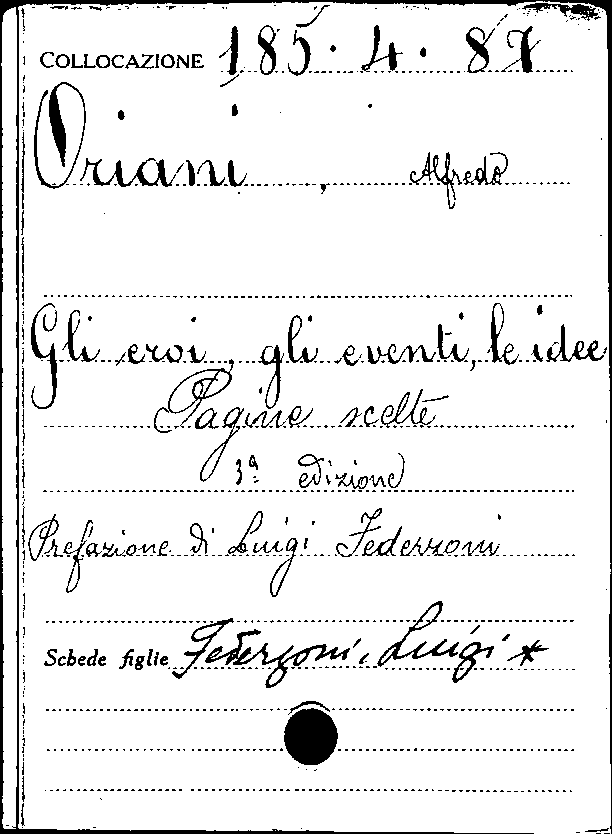 COLLOCAZIONE 185.4.87
Oriani, Alfredo
Gli eroi, gli eventi, le idee
Pagine scelte
3ª edizione
Prefazione di Luigi Federzoni
Schede figlie Federzoni, Luigi *